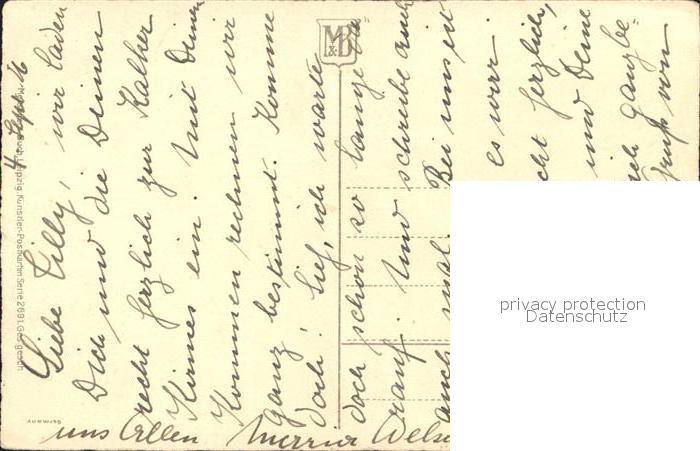 4. Sept. 16
Liebe Tilly, wir laden
Dich und die Deinen
recht herzlich zur Kalher
Kirmes ein. Mit Deinem
Kommen rechnen wir
ganz bestimmt. Komme
doch! Sieh, ich warte
doch schon so lange da-
rauf. Und schreibe auch
auch mal. Bei uns ist
es war
herzlich,
und Deine
ganz be-
Gruß von
uns Allen
M&B
Leipzig, Künstler-Postkarten Serie 2691. Ges. gesch.
Germany
privacy protection
Datenschutz